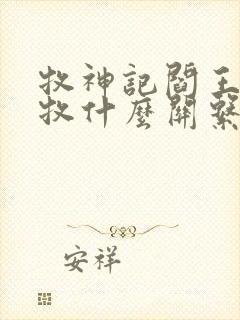 牧神記閻王
牧什麼關繫
安祥